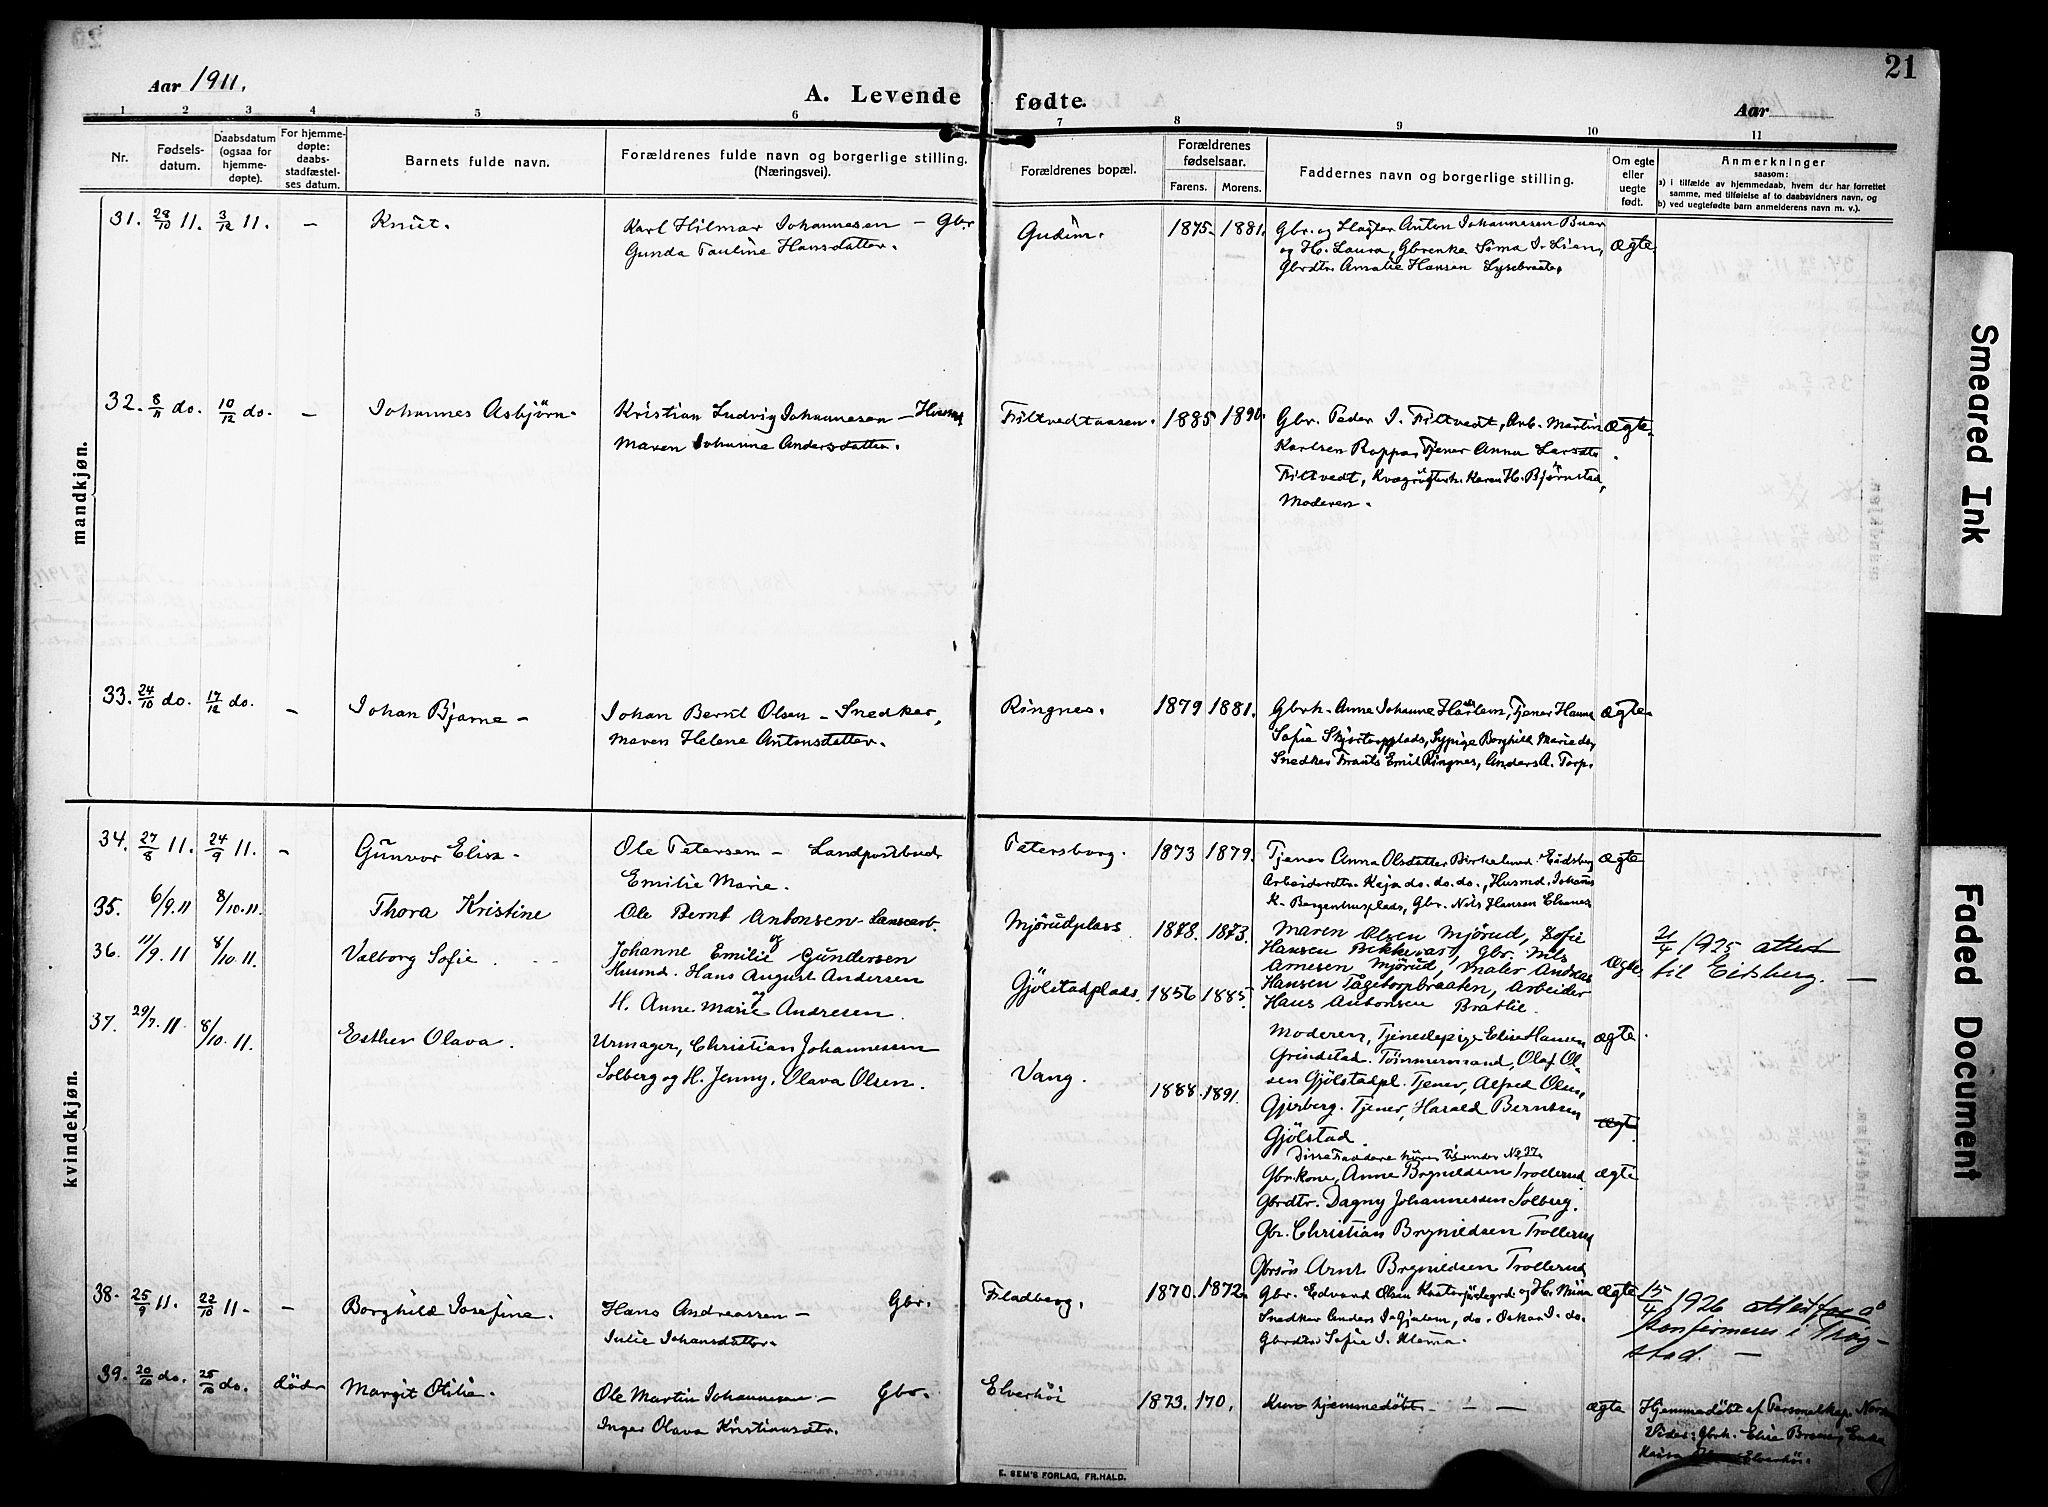 21
Aar 1911.
A. Levende fødte.
Aar
1 2 3 4 5 6 7 8 9 10 11
Nr.
Fødsels-
datum.
Daabsdatum
(ogsaa for
hjemme-
døpte).
For hjemme-
døpte:
daabs-
stadfæstel-
ses datum.
Barnets fulde navn.
Forældrenes fulde navn og borgerlige stilling.
(Næringsvei).
Forældrenes bopæl.
Forældrenes
fødselsaar.
Farens. Morens.
Faddernes navn og borgerlige stilling.
Om egte
eller
uegte
født.
Anmerkninger
saasom:
a) i tilfælde av hjemmedaab, hvem der har forrettet
samme, med tilføielse af to daabsvidners navn, og
b) ved uegtefødte barn anmelderens navn m. v.).
mandkjøn.
31. 28/10 11. 3/12 11. – Knut. Karl Hilmar Johannesen – Gbr. Gudim. 1875. 1881. Gbr. og Slagter Anton Johannesen Buer ægte.
Gunda Pauline Hansdatter. og H. Laura, Gbrenke Sima J. Lien,
Gbrdtr. Amalie Hansen Lysebraate.
32. 8/11 do. 10/12 do. – Johannes Asbjørn. Kristian Ludvig Johannesen – Husmd Filtvedtaasen. 1885 1890. Gbr. Peder J. Filtvedt, Arb. Martin ægte.
Maren Johanne Andersdatter. Karlsen Rappa, Tjener Anna Larsdtr
Filtvedt, Kvægrøgtersk. Karen H. Bjørnstad,
Moderen.
33. 24/10 do. 17/12 do. – Johan Bjarne – Johan Bernt Olsen – Snedker, Ringnes. 1879 1881. Gbrk. Anne Johanne Harlem, Tjener Hanna ægte.
Maren Helene Antonsdatter. Sofie Skjortorpplads, Sypige Borghild Marie do,
Snedker Frants Emil Ringnes, Anders A. Torp.
kvindekjøn.
34. 27/8 11. 24/9 11. – Gunvor Elise. Ole Petersen – Landpostbud Petersborg. 1873 1879. Tjener Anna Olsdatter Birkelund Eidsberg ægte
Emilie Marie. Arbeiderdtr. Kaja do. do. do., Husmd. Johannes
K. Bergenhusplads, Gbr. Nils Hansen
35. 6/9. 11 8/10. 11. Thora Kristine Ole Bernt Antonsen Mjørudplass 1878. 1873. Maren Olsen Mjørud, Sofie
og Hansen Bikkevast, Gbr. Nils ægte
Johanne Emilie Gundersen Arnesen Mjørud, Maler Andreas
36. 11/9. 11 8/10. 11. Valborg Sofie. Husmd. Hans August Andersen Gjølstadplads. 1856 1885. Hansen Tagetorpbraaten, Arbeider 21/4 1925 attest
og Hans Antonsen Bratlie. til Eidsberg. –
H. Anne Marie Andresen.
37. 29/7. 11 8/10. 11. Esther Olava. Urmager, Christian Johannessen Vang. 1888. 1891. Moderen, Tjenestepige Elise Hansen ægte
Solberg og H. Jenny, Olava Olsen. Grindstad. Tømmermand, Olaf Ol-
sen Gjølstadpl. Tjener, Alfred Olsen,
Gjerberg. Tjener, Harald Berntsen ægte
Gjølstad.
Disse Faddere hører til under No 37
Gbr.kone, Anne Brynildsen Trollerud ægte
Gbrdtr. Dagny Johannessen Solberg.
Gbr. Christian Brynildsen Trollerud
Gbrsøn Arnt Brynildsen Trollerud
38. 25/9 11. 22/10 11. – Borghild Josefine. Hans Andreassen – Gbr. Fladberg. 1870. 1872. Gbr. Edvard Olsen og H. Mina ægte 15/4 1926 attest for å
Julie Johansdatter. Snedker Anders J. Gjalem, do. Oskar J. do. konfirmeres i Trøg-
Gbrdtr. Sofie J. Klema. stad. –
39. 20/10 do. 25/10 do. død Margit Otilie. Ole Martin Johannesen – Gbr. Elverhøi 1873. 170. Kun hjemmedøbt – – – ægte Hjemmedøbt af
Inger Olava Kristiansdtr. Vidner: Gbrk. Elise
Elverhøi.
E. SEM'S FORLAG, FR.HALD.
Smeared Ink
Faded Document